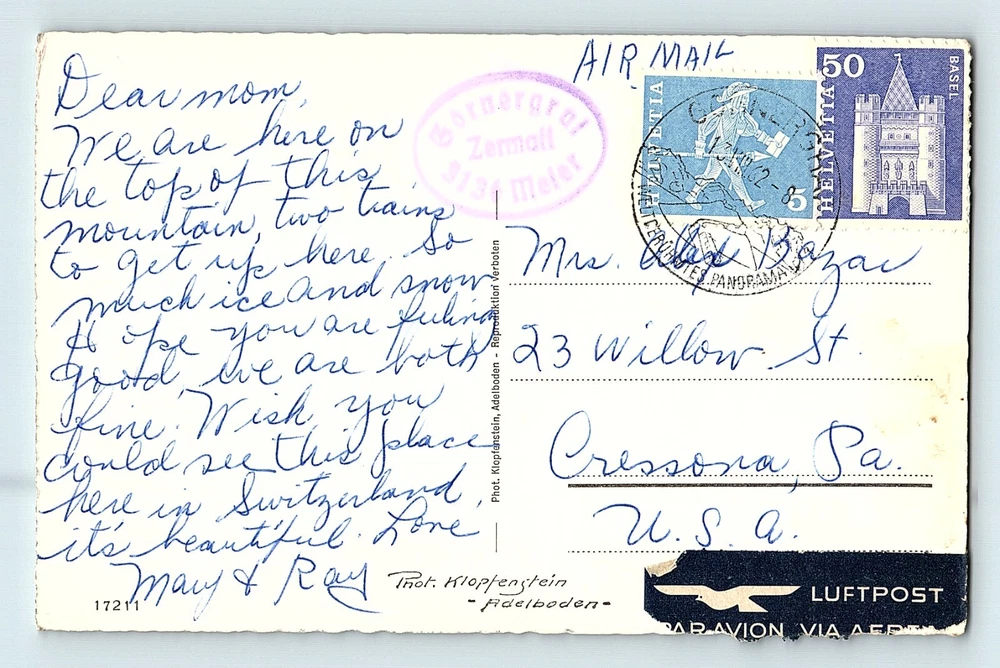 Dear mom,
We are here on
the top of this
mountain, two trains
to get up here. So
much ice and snow
Hope you are feeling
good, we are both
fine. Wish you
could see this place
here in Switzerland,
it's beautiful. Love
Mary & Ray
17211
Phot. Klopfenstein
- Adelboden -
Phot. Klopfenstein, Adelboden - Reproduktion verboten
Görnergrat
Zermatt
Meier
AIR MAIL
HELVETIA
5
50
HELVETIA
BASEL
PANORAMA
Mrs. Alex
23 Willow St.
Cressona, Pa.
U.S.A.
LUFTPOST
PAR AVION VIA